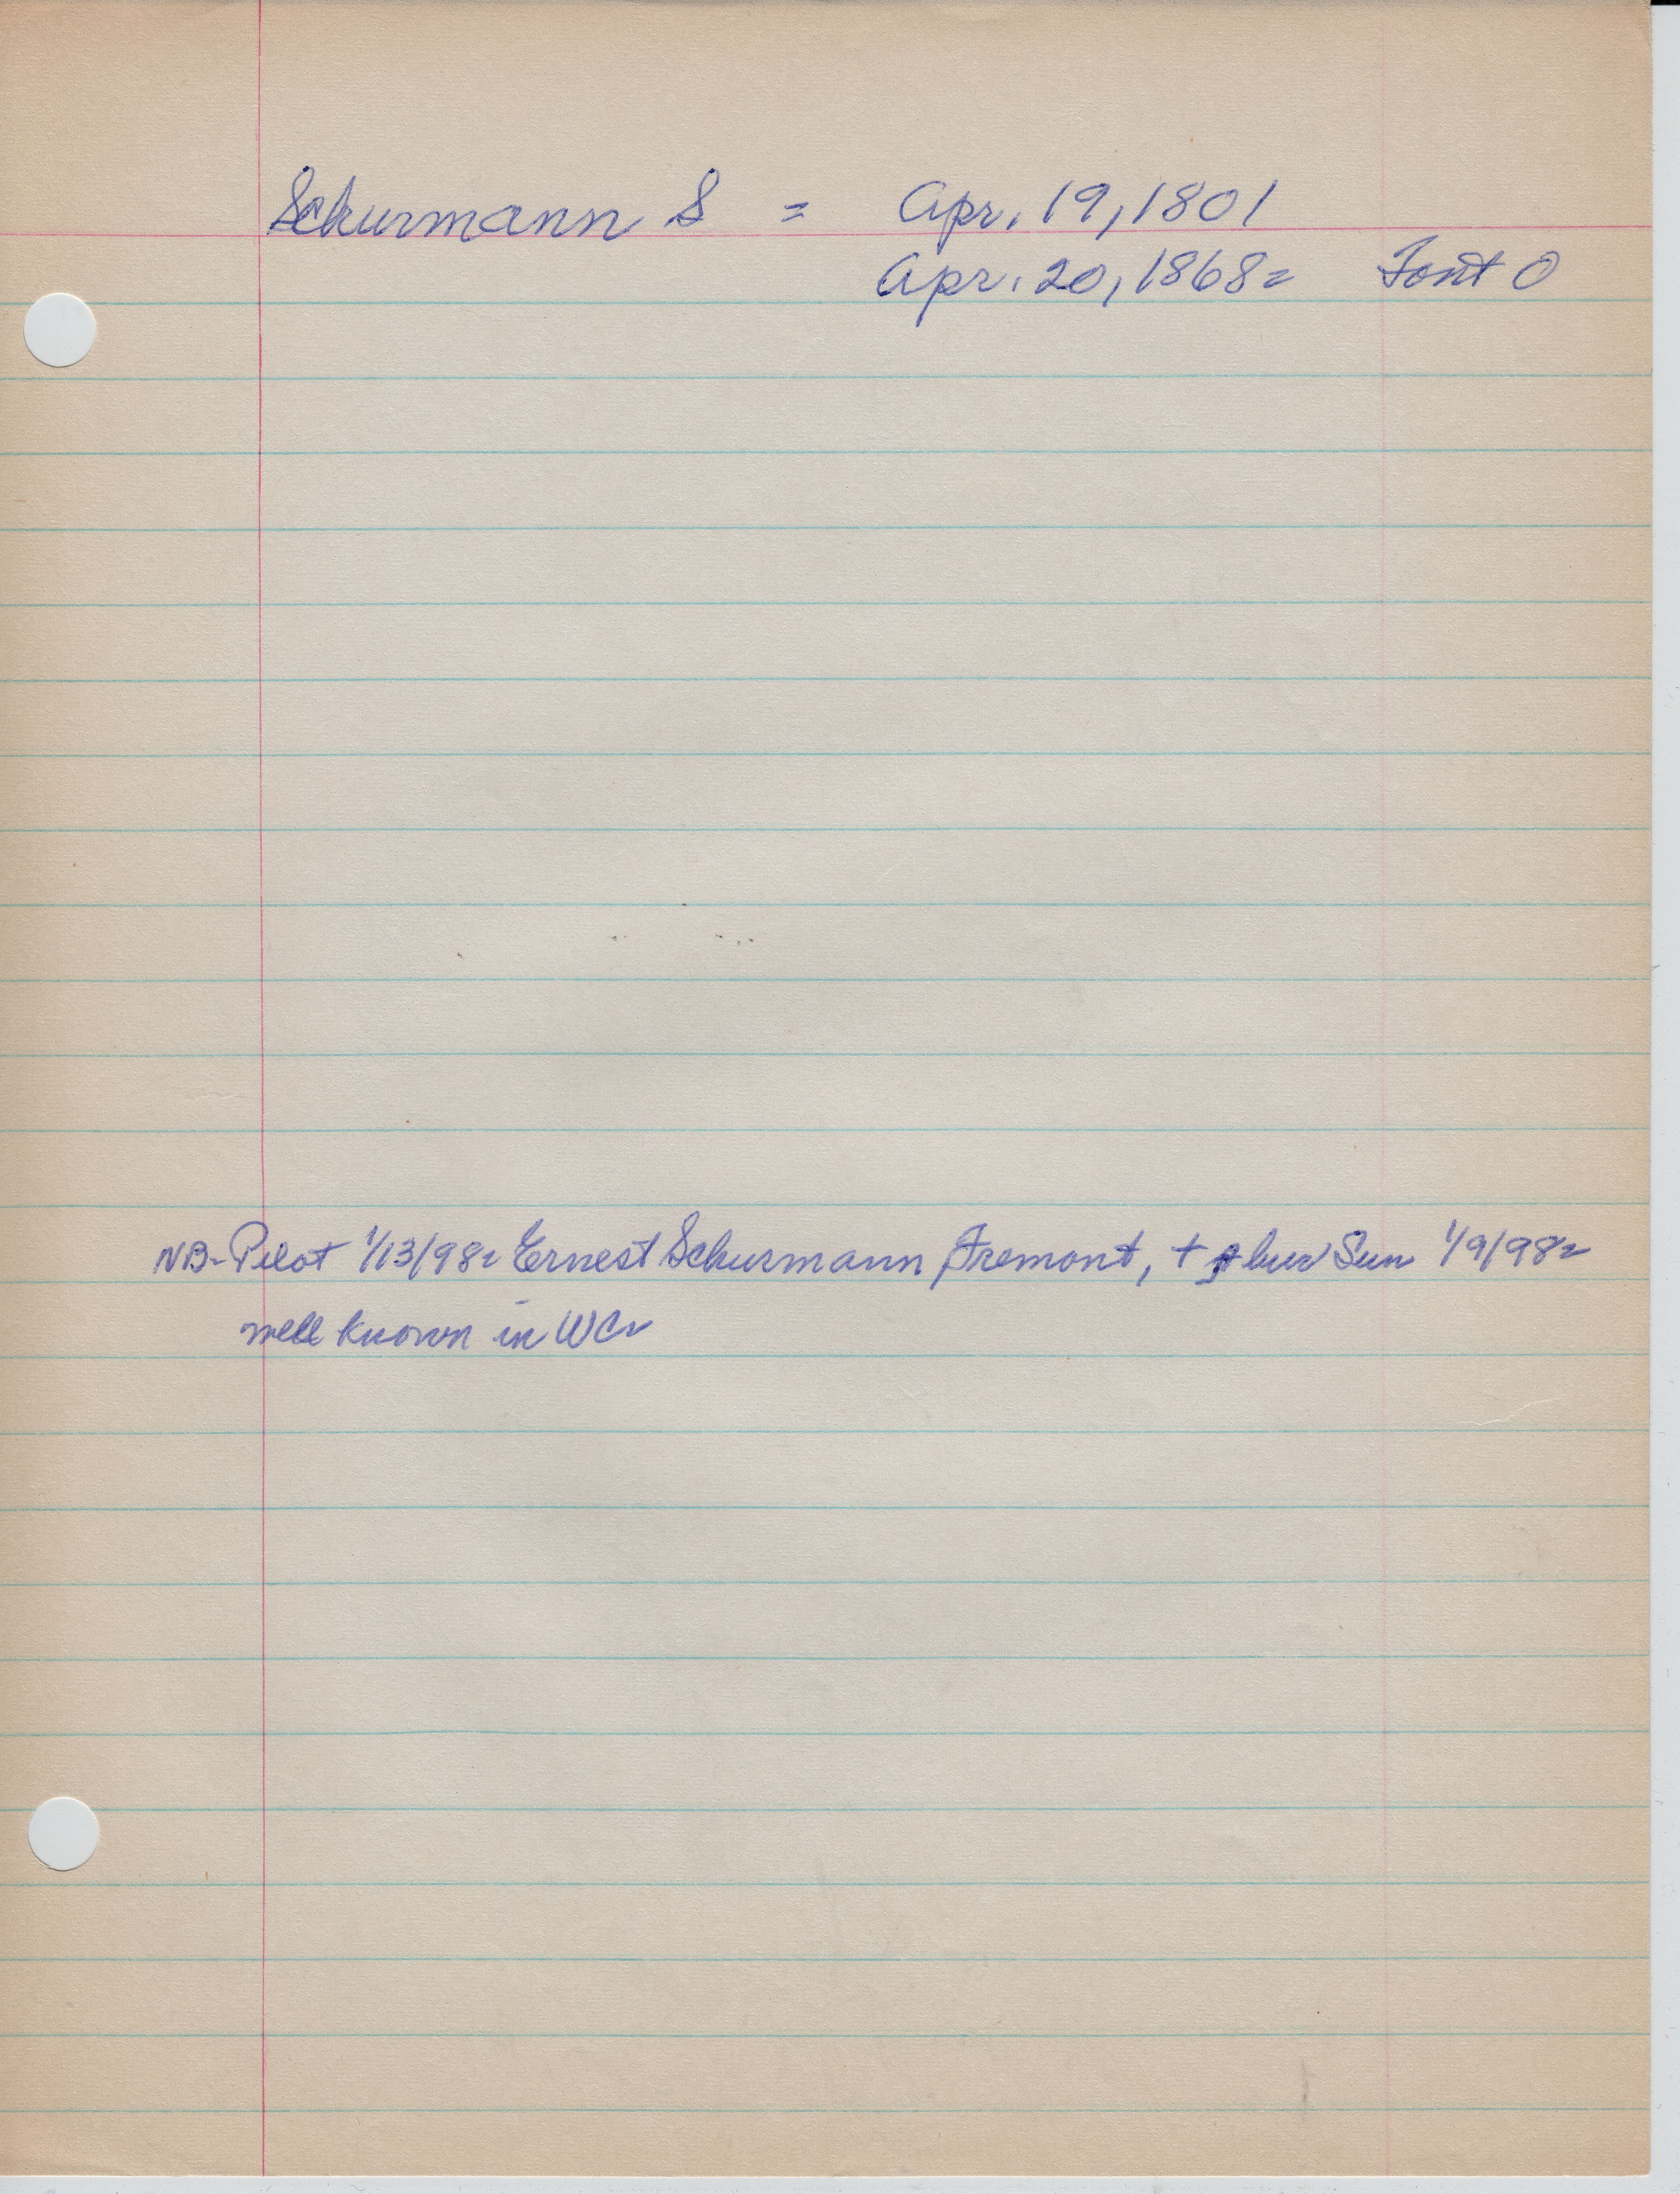 Schurmann S = Apr. 19, 1801
Apr. 20, 1868= Font O
NB- Pilot 1/13/98= Ernest Schurmann Fremont, + bur Sun 1/9/98=
well known in WC=